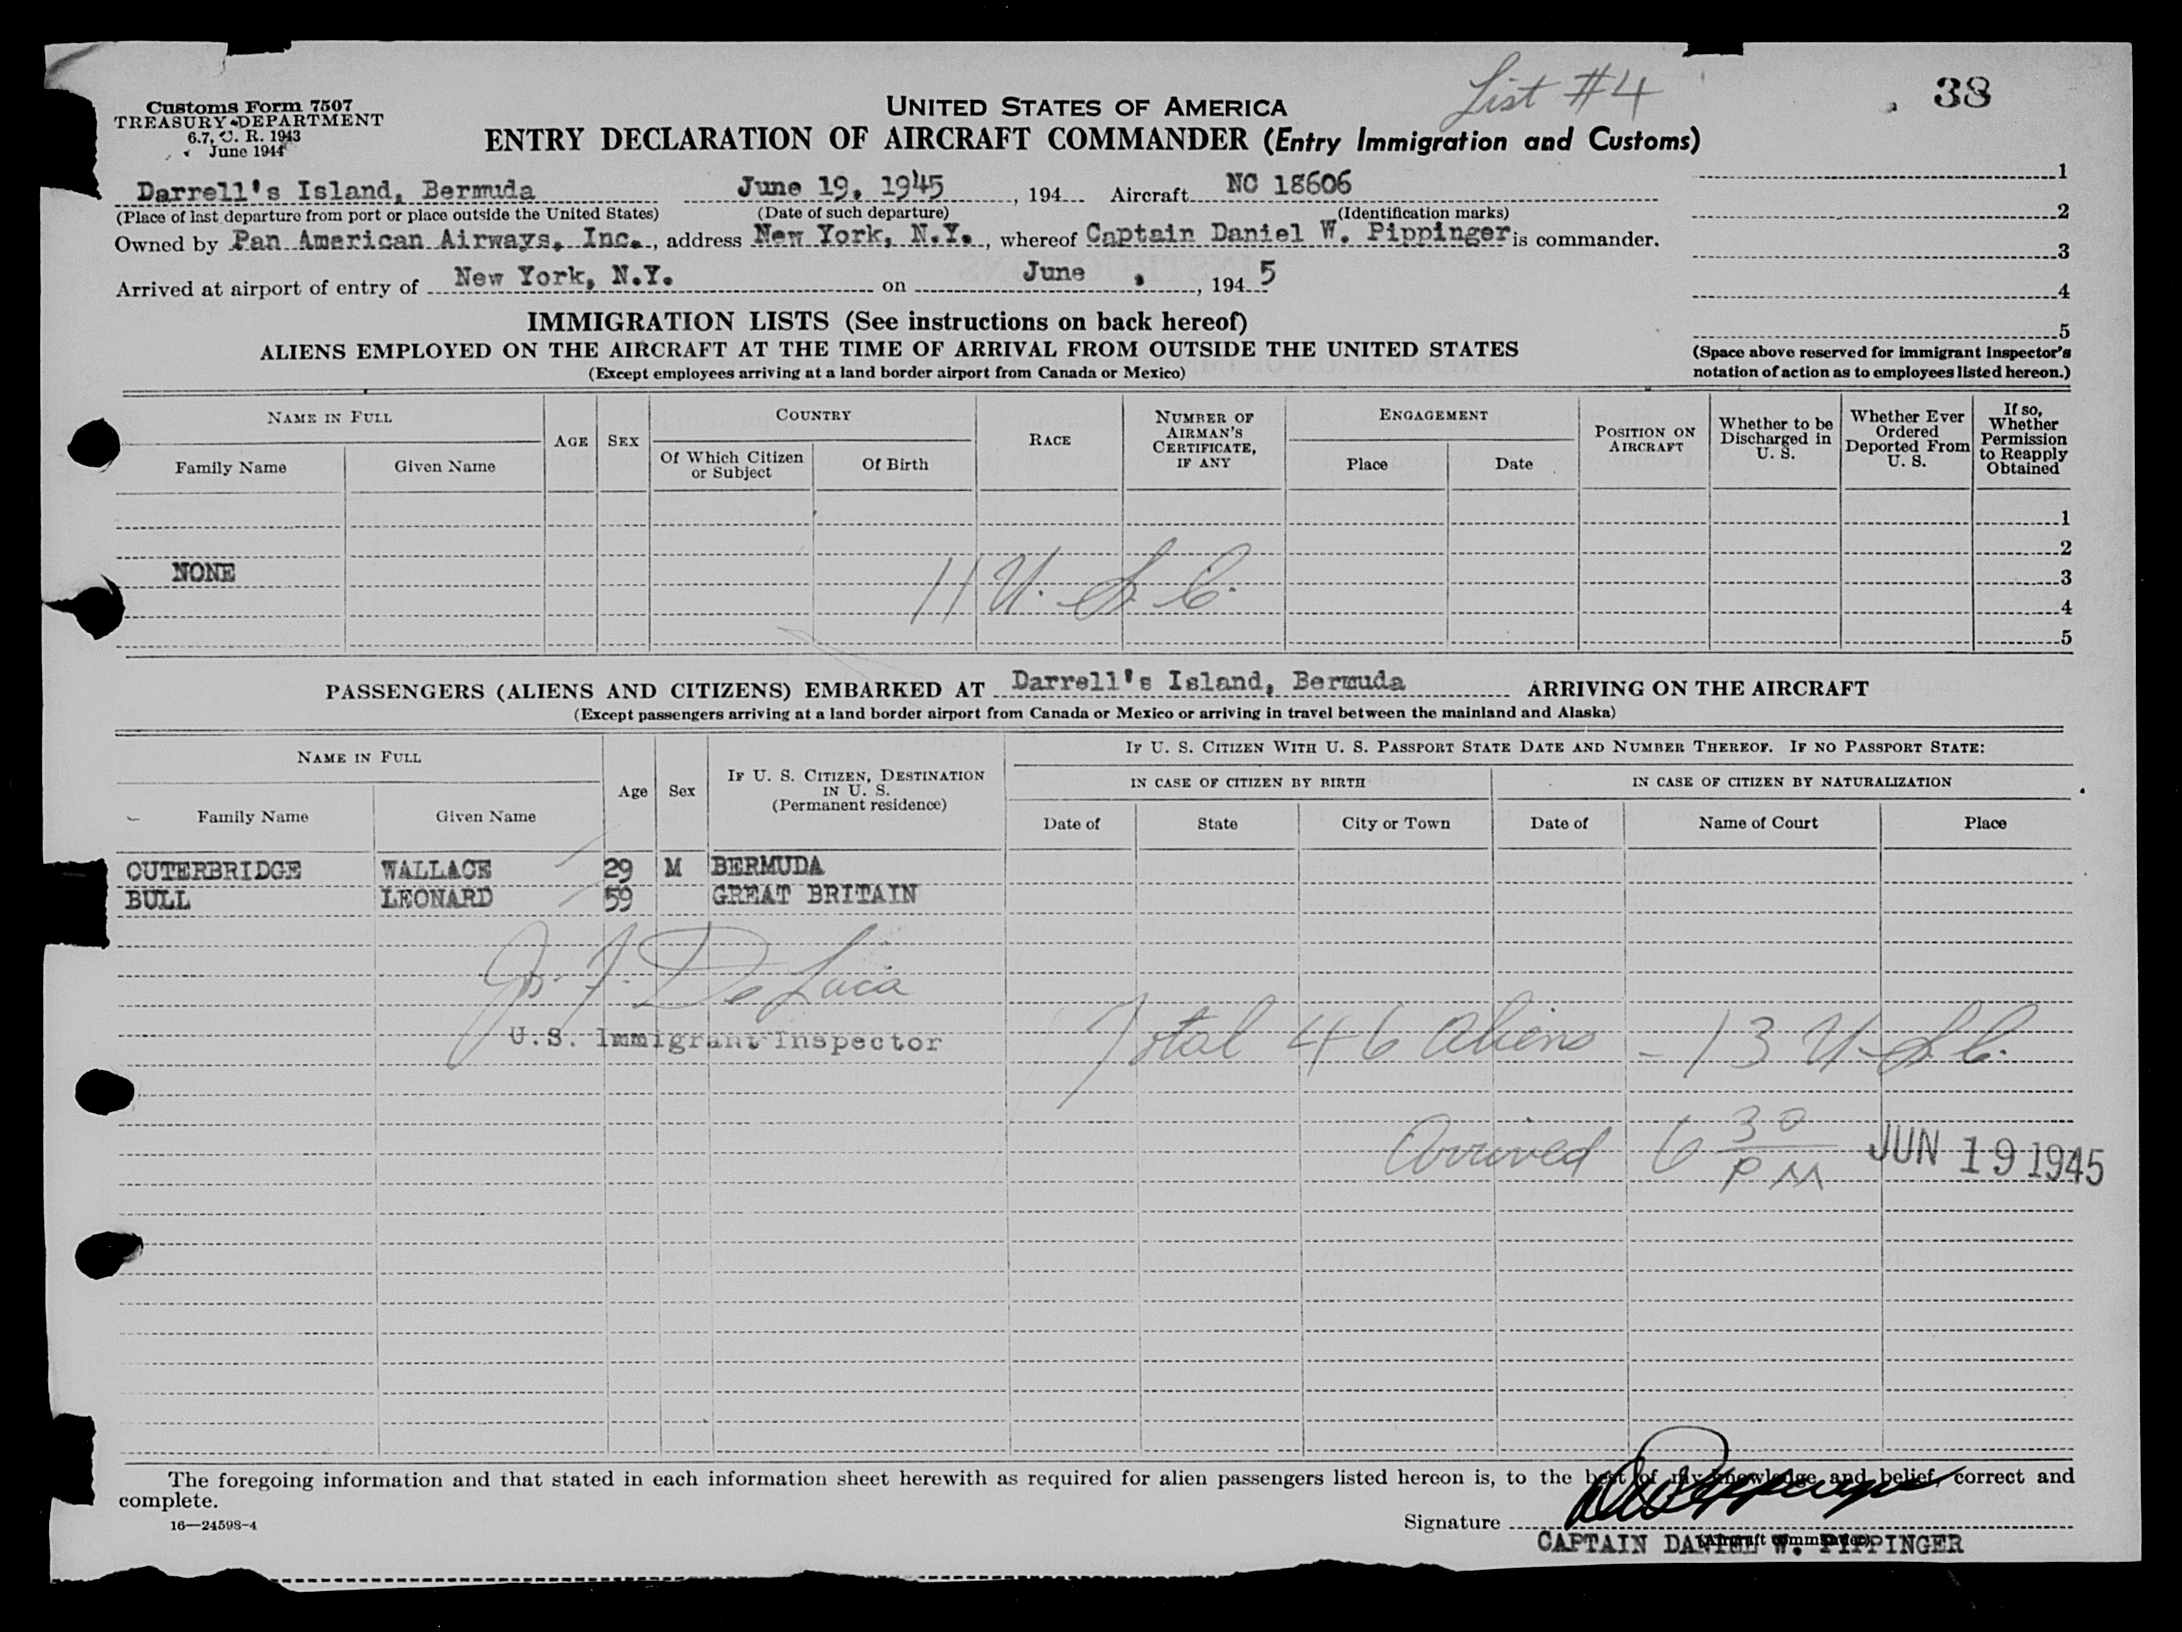 List #4
38
Customs Form 7507
TREASURY DEPARTMENT
6.7, C. R. 1943
June 1944
UNITED STATES OF AMERICA
ENTRY DECLARATION OF AIRCRAFT COMMANDER (Entry Immigration and Customs)
Darrell's Island, Bermuda June 19, 1945, 194 Aircraft NC 18606
(Place of last departure from port or place outside the United States) (Date of such departure) (Identification marks)
Owned by Pan American Airways, Inc., address New York, N.Y., whereof Captain Daniel W. Pippinger is commander.
Arrived at airport of entry of New York, N.Y. on June , 1945
1
2
3
4
5
(Space above reserved for immigrant inspector's
notation of action as to employees listed hereon.)
IMMIGRATION LISTS (See instructions on back hereof)
ALIENS EMPLOYED ON THE AIRCRAFT AT THE TIME OF ARRIVAL FROM OUTSIDE THE UNITED STATES
(Except employees arriving at a land border airport from Canada or Mexico)
NAME IN FULL
Family Name Given Name
AGE SEX
COUNTRY
Of Which Citizen or Subject
Of Birth
RACE
NUMBER OF AIRMAN'S CERTIFICATE, IF ANY
ENGAGEMENT
Place Date
POSITION ON AIRCRAFT
Whether to be Discharged in U. S.
Whether Ever Ordered Deported From U. S.
If so, Whether Permission to Reapply Obtained
1
2
NONE 3
11 U.S.C.
4
5
PASSENGERS (ALIENS AND CITIZENS) EMBARKED AT Darrell's Island, Bermuda ARRIVING ON THE AIRCRAFT
(Except passengers arriving at a land border airport from Canada or Mexico or arriving in travel between the mainland and Alaska)
NAME IN FULL
Family Name Given Name
Age Sex
IF U. S. CITIZEN, DESTINATION IN U. S.
(Permanent residence)
IF U. S. CITIZEN WITH U. S. PASSPORT STATE DATE AND NUMBER THEREOF. IF NO PASSPORT STATE:
IN CASE OF CITIZEN BY BIRTH IN CASE OF CITIZEN BY NATURALIZATION
Date of State City or Town Date of Name of Court Place
OUTERBRIDGE WALLACE 29 M BERMUDA
BULL LEONARD 59 GREAT BRITAIN
J. De Luca
U.S. Immigrant Inspector
Total 46 Aliens - 13 U.S.C.
Arrived 6 30 PM JUN 19 1945
The foregoing information and that stated in each information sheet herewith as required for alien passengers listed hereon is, to the best of my knowledge and belief, correct and
complete.
16—24598-4
Signature
(Aircraft Commander)
CAPTAIN DANIEL W. PIPPINGER